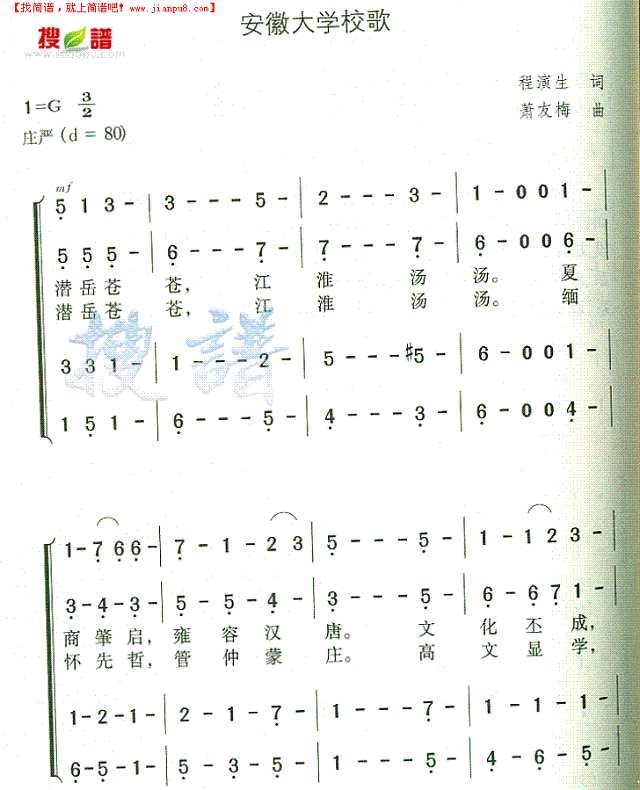 【找简谱，就上简谱吧！www.jianpu8.com】
搜谱
www.sooopu.com
安徽大学校歌
程演生 词
萧友梅 曲
1=G 3/2
庄严 (d = 80)
mf
5 1 3 - | 3 - - - 5 - | 2 - - - 3 - | 1 - 0 0 1 -
5 5 5 - | 6 - - - 7 - | 7 - - - 7 - | 6 - 0 0 6 -
潜岳苍 苍， 江 淮 汤 汤。 夏
潜岳苍 苍， 江 淮 汤 汤。 缅
搜谱
3 3 1 - | 1 - - - 2 - | 5 - - - #5 - | 6 - 0 0 1 -
1 5 1 - | 6 - - - 5 - | 4 - - - 3 - | 6 - 0 0 4 -
1 - 7 6 6 - | 7 - 1 - 2 3 | 5 - - - 5 - | 1 - 1 2 3 -
3 - 4 - 3 - | 5 - 5 - 4 - | 3 - - - 5 - | 6 - 6 7 1 -
商肇启，雍容汉 唐。 文 化丕成，
怀先哲，管仲蒙 庄。 高 文显学，
1 - 2 - 1 - | 2 - 1 - 7 - | 1 - - - 7 - | 1 - 1 - 1 -
6 - 5 - 1 - | 5 - 3 - 5 - | 1 - - - 5 - | 4 - 6 - 5 -